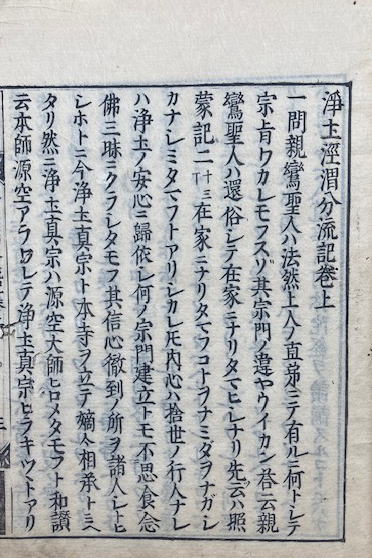 淨土涇渭分流記卷上
一問親鸞聖人ハ法然上人ノ直弟ニテ有ルニ何トシテ
宗旨ワカレモフスゾ其宗門ノ違ヤウイカン答云親
鸞聖人ハ還俗シテ在家ニナリタマヒシナリ先ツハ照
蒙記二十三在家ニナリタマフコトヲナミダヲナガシ
カナシミタマフトアリシカレ𪜈内心ハ捨世ノ行人ナレ
ハ淨土ノ安心ニ歸依シ何ノ宗門建立トモ不思食念
佛三昧ニクラシタモフ其信心徹到ノ所ヲ諸人シトヒ
シホトニ今淨土真宗ト本寺ヲ立テ嫡々相承トミヘ
タリ然ニ淨土真宗ハ源空大師ヒロメタモフト和讃
云本師源空アラワレテ淨土真宗ヒラキツヽトアリ